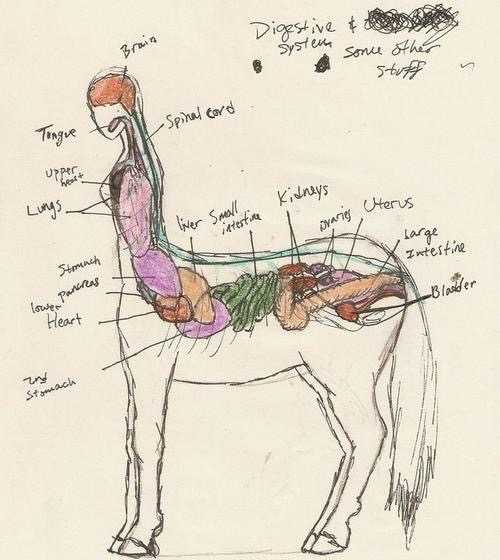 Digestive &
System some other
stuff
Brain
Tongue
Spinal cord
upper
heart
Lungs
liver
Small
intestine
Kidneys
ovaries
Uterus
Large
Intestine
Bladder
Stomach
pancreas
lower
Heart
2nd
Stomach